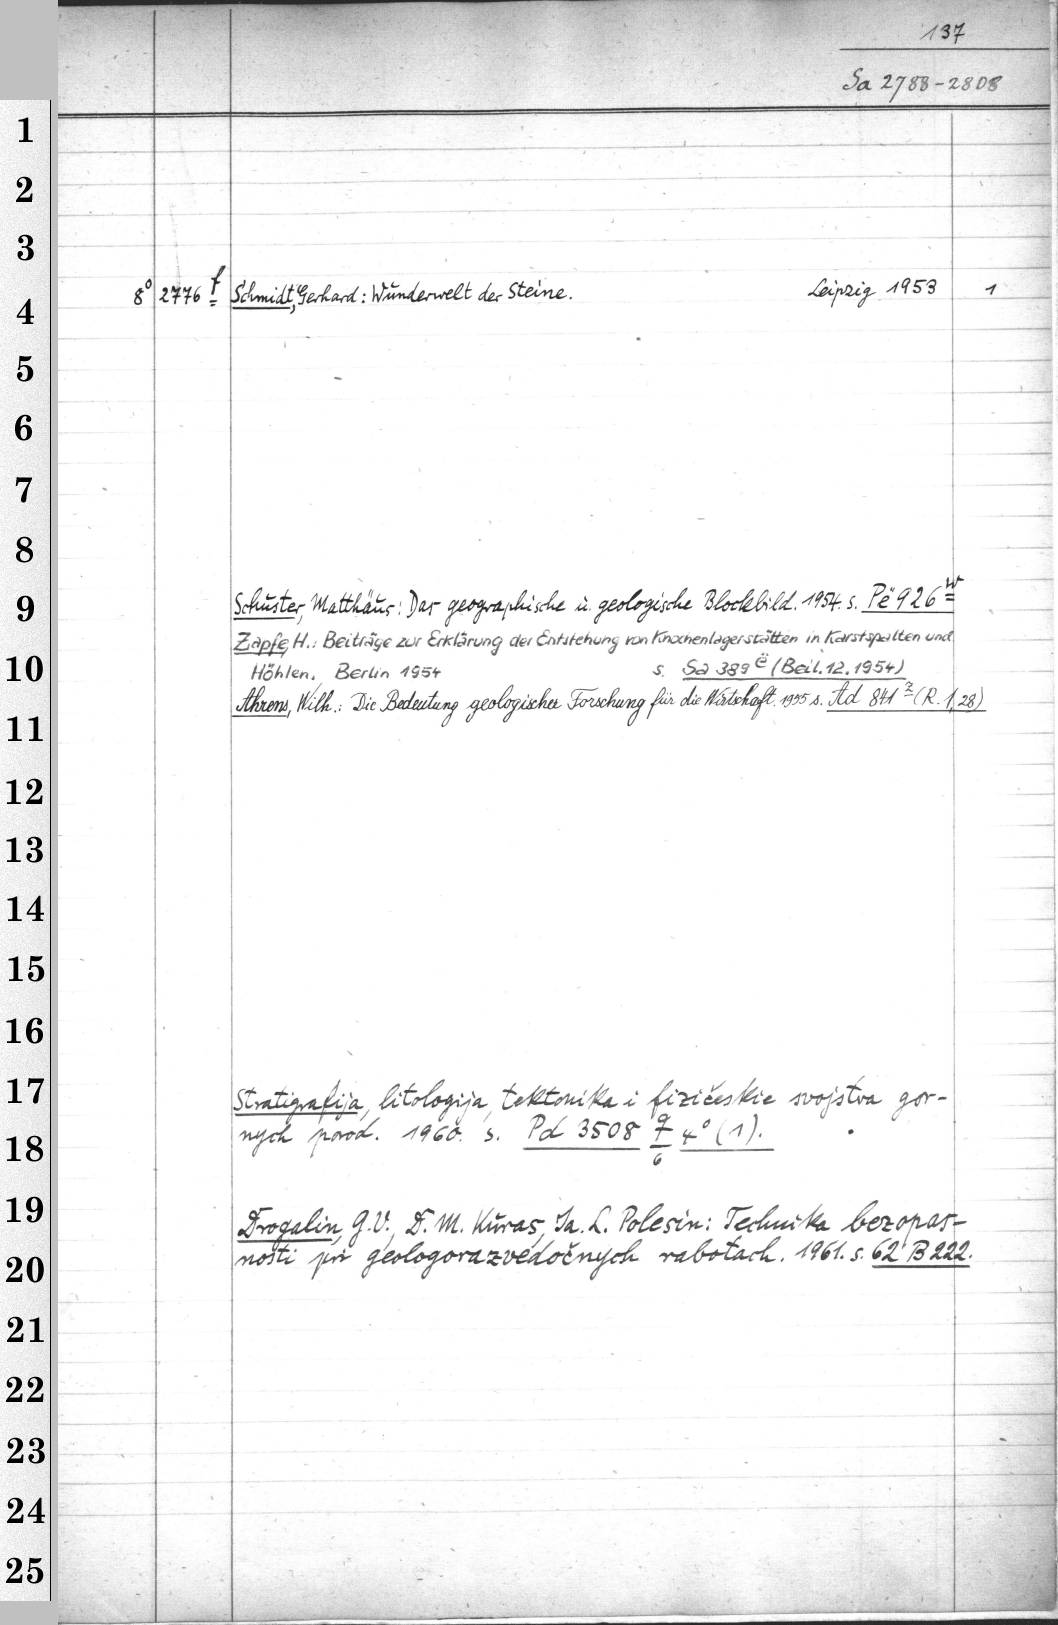 137
Sa 2788-2808
1
2
3
4
8° 2776 f Schmidt, Gerhard: Wunderwelt der Steine. Leipzig 1953 1
5
6
7
8
9
Schuster, Matthäus: Das geographische u. geologische Blockbild. 1954. s. Pë 926 w
Zapfe, H.: Beiträge zur Erklärung der Entstehung von Knochenlagerstätten in Karstspalten und
10
Höhlen. Berlin 1954 s. Sa 389 ë (Beil. 12. 1954)
Ahrens, Wilh.: Die Bedeutung geologischer Forschung für die Wirtschaft. 1955 s. Ad 841 z (R. 1,28)
11
12
13
14
15
16
17
Stratigrafija, litologija, tektonika i fizičeskie svojstva gor-
18
nych porod. 1960. s. Pd 3508 q/6 4° (1).
19
Drogalin, G.V., D.M. Kuras, Ja. L. Polesin: Technika bezopas-
20
nosti pri geologorazvedočnych rabotach. 1961. s. 62 B 222.
21
22
23
24
25